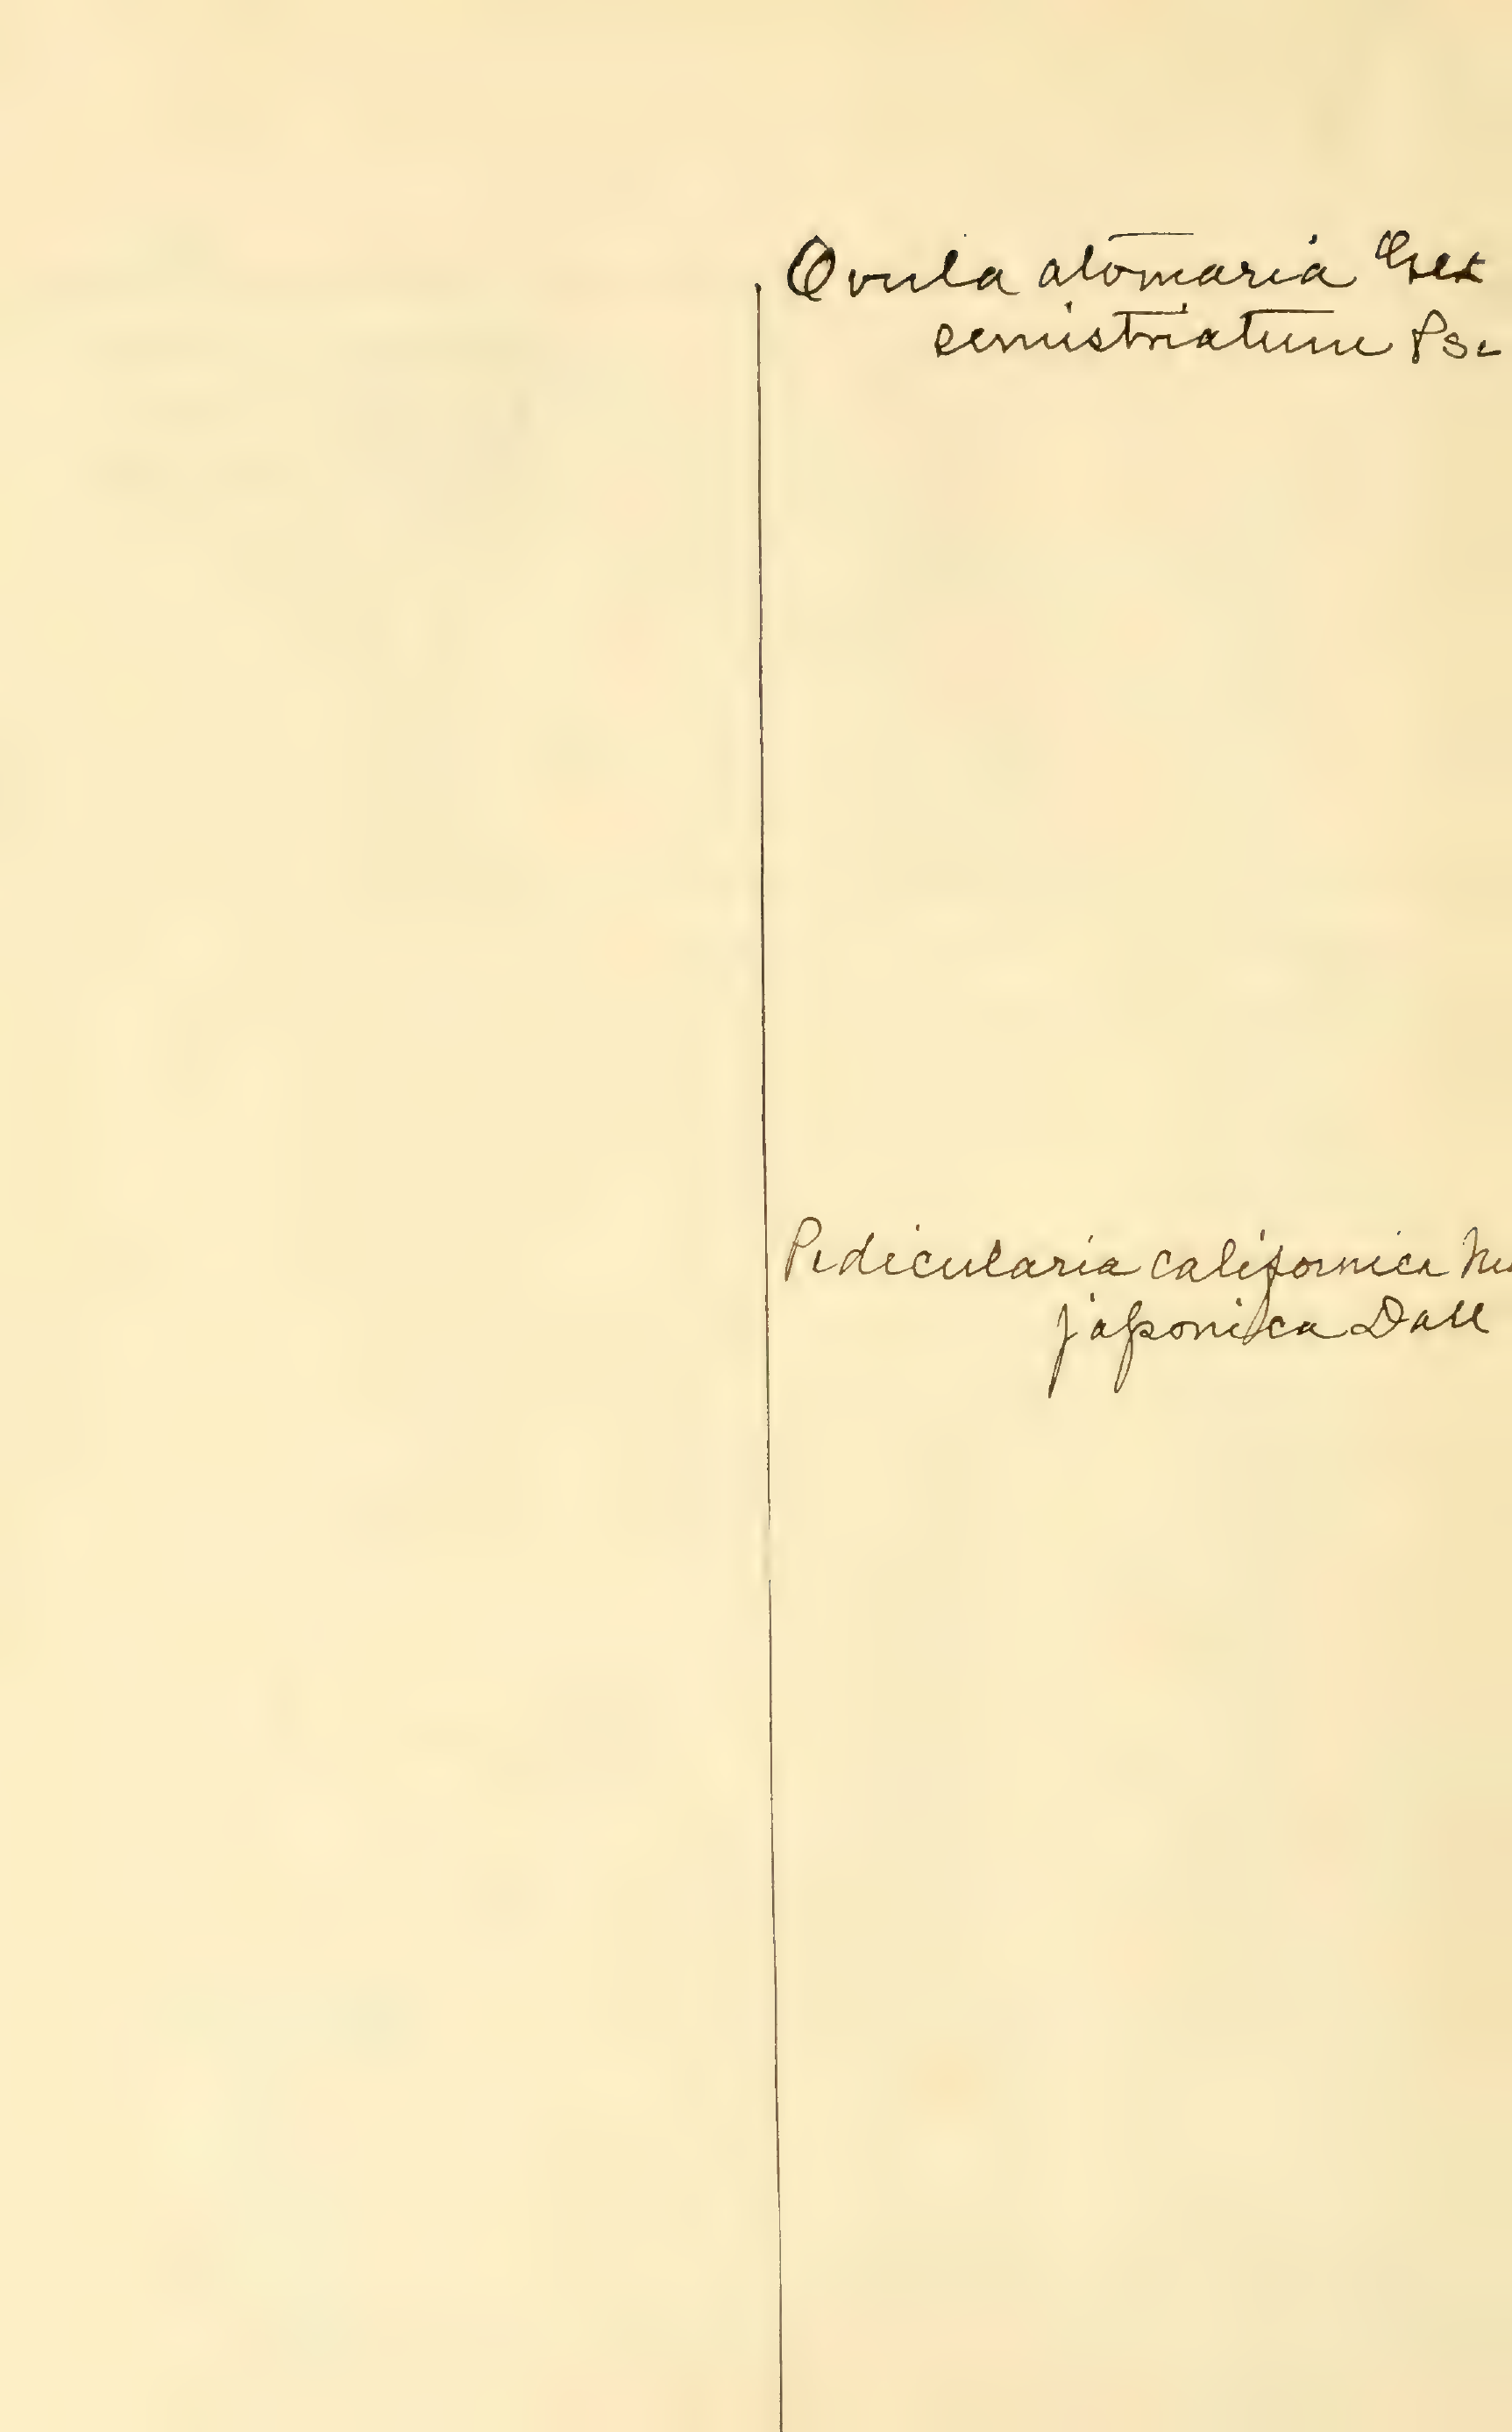 Ovula atomaria
semistriatum
Pedicularia californica
japonica Dall